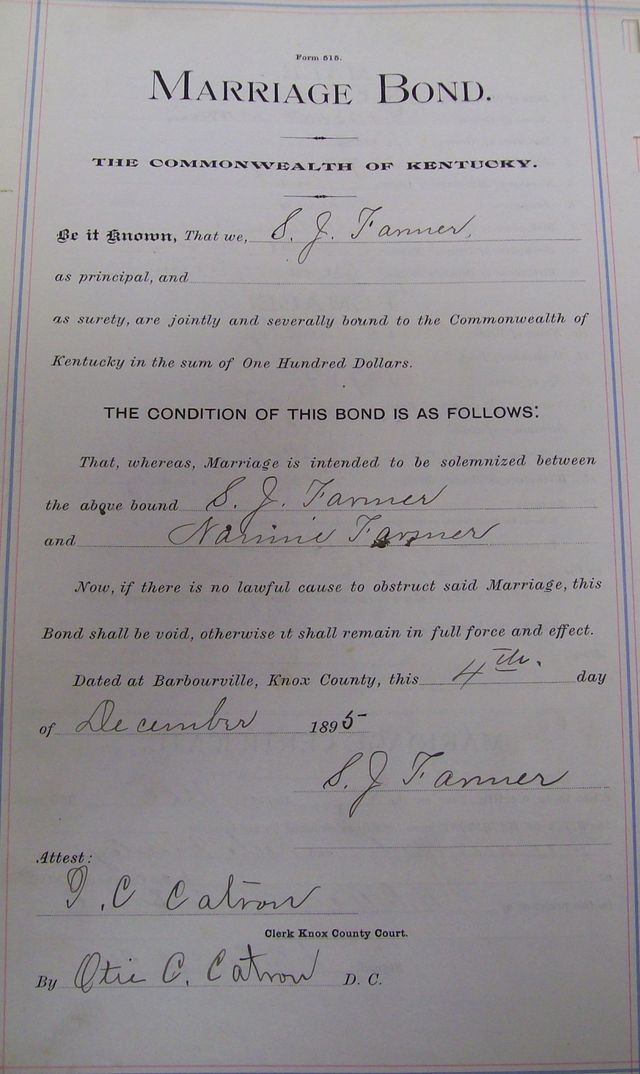 Form 515.
MARRIAGE BOND.
THE COMMONWEALTH OF KENTUCKY.
Be it Known, That we, S. J. Farmer,
as principal, and
as surety, are jointly and severally bound to the Commonwealth of
Kentucky in the sum of One Hundred Dollars.
THE CONDITION OF THIS BOND IS AS FOLLOWS:
That, whereas, Marriage is intended to be solemnized between
the above bound S. J. Farmer
and Nannie Farmer
Now, if there is no lawful cause to obstruct said Marriage, this
Bond shall be void, otherwise it shall remain in full force and effect.
Dated at Barbourville, Knox County, this 4th. day
of December 1895
S. J Farmer
Attest:
C Catron
Clerk Knox County Court.
By Otie C. Catron D. C.